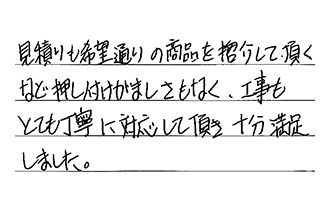 見積りも希望通りの商品を紹介して頂く
など押し付けがましさもなく、工事も
とても丁寧に対応して頂き十分満足
しました。